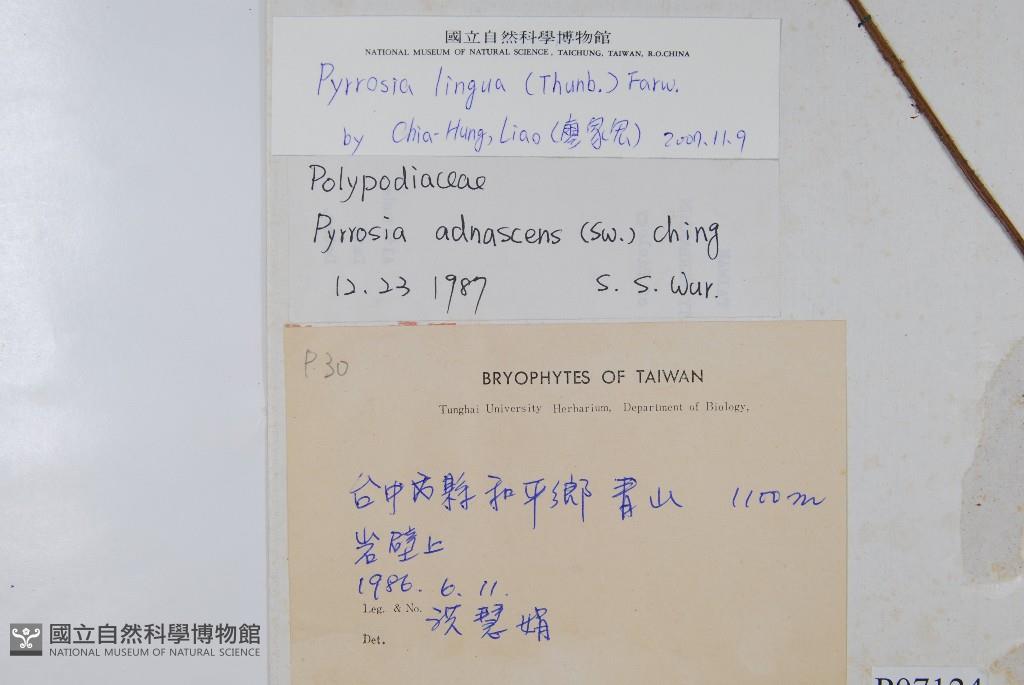 國立自然科學博物館
NATIONAL MUSEUM OF NATURAL SCIENCE, TAICHUNG, TAIWAN, R.O.CHINA
Pyrrosia lingua (Thunb.) Farw.
by Chia-Hung, Liao (廖家宏) 2007.11.9
Polypodiaceae
Pyrrosia adnascens (Sw.) ching
12.23 1987 S. S. Wur.
P.30
BRYOPHYTES OF TAIWAN
Tunghai University Herbarium, Department of Biology,
台中縣 和平鄉 青山 1100m
岩壁上
1986. 6. 11.
Leg. & No. 洪慧娟
Det.
國立自然科學博物館
NATIONAL MUSEUM OF NATURAL SCIENCE